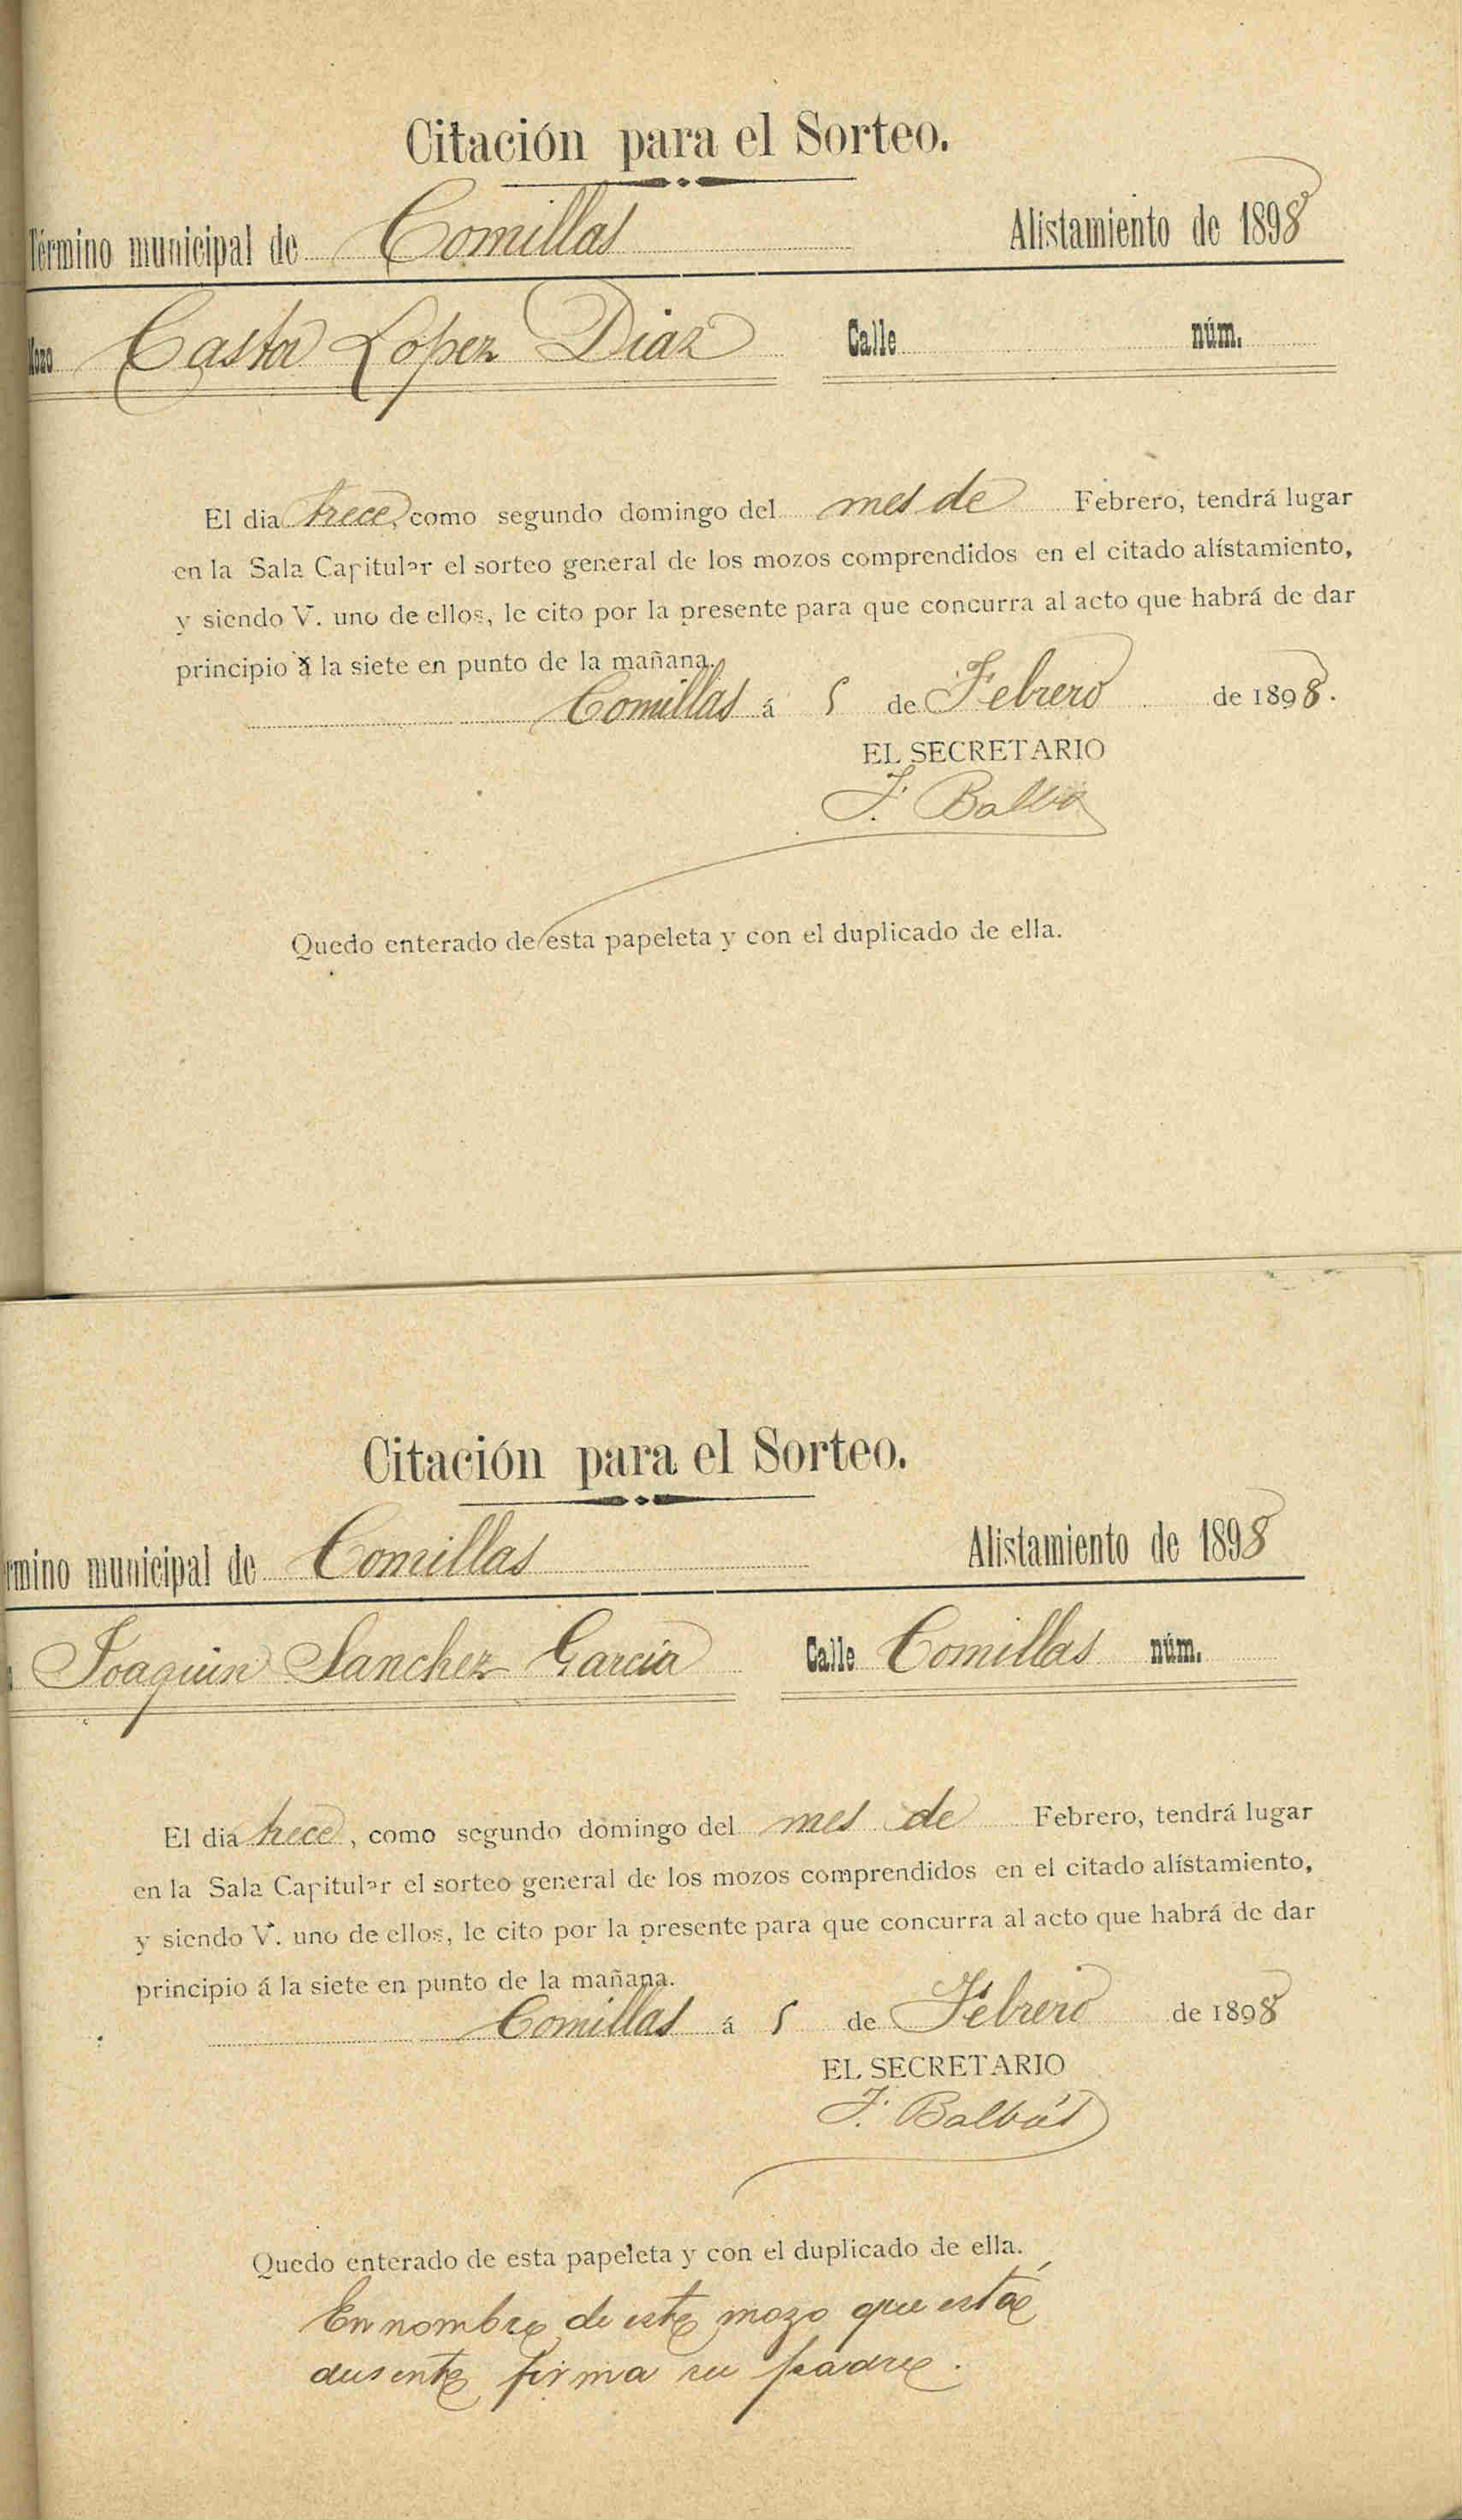 Citación para el Sorteo.
Término municipal de Comillas Alistamiento de 1898
Mozo Castor Lopez Diaz Calle núm.
El dia trece, como segundo domingo del mes de Febrero, tendrá lugar
en la Sala Capitular el sorteo general de los mozos comprendidos en el citado alistamiento,
y siendo V. uno de ellos, le cito por la presente para que concurra al acto que habrá de dar
principio á la siete en punto de la mañana.
Comillas á 5 de Febrero de 1898.
EL SECRETARIO
F. Balbás
Quedo enterado de esta papeleta y con el duplicado de ella.
Citación para el Sorteo.
rmino municipal de Comillas Alistamiento de 1898
Joaquin Sanchez Garcia Calle Comillas núm.
El dia trece, como segundo domingo del mes de Febrero, tendrá lugar
en la Sala Capitular el sorteo general de los mozos comprendidos en el citado alistamiento,
y siendo V. uno de ellos, le cito por la presente para que concurra al acto que habrá de dar
principio á la siete en punto de la mañana.
Comillas á 5 de Febrero de 1898
EL SECRETARIO
F. Balbás
Quedo enterado de esta papeleta y con el duplicado de ella.
En nombre de este mozo que está
ausente firma su padre.